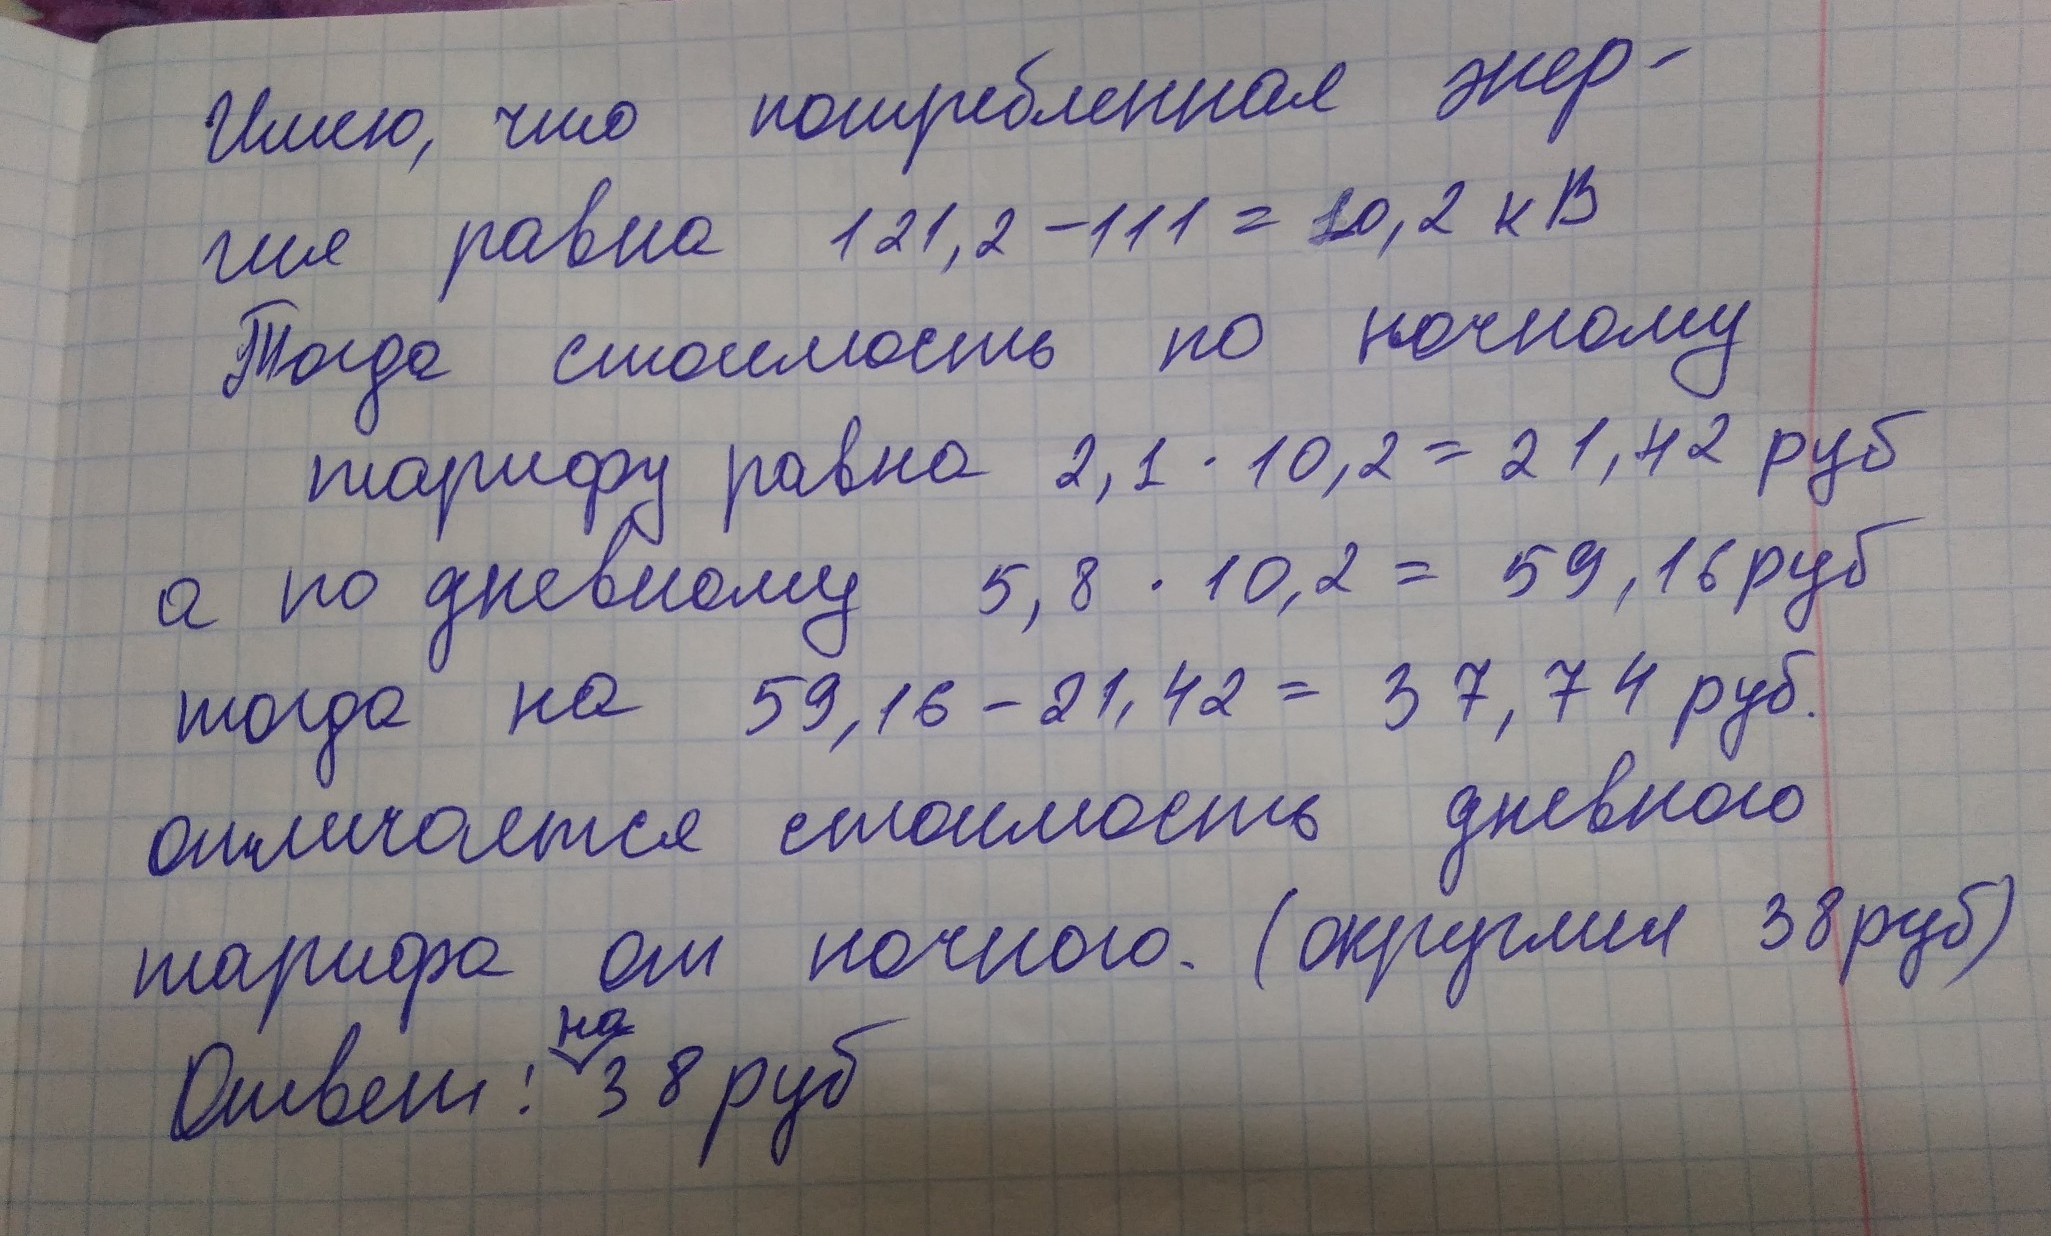 Имею, что потребленная энер-
гия равна 121,2 - 111 = 10,2 кВ
Тогда стоимость по ночному
тарифу равна 2,1 · 10,2 = 21,42 руб
а по дневному 5,8 · 10,2 = 59,16 руб
тогда на 59,16 - 21,42 = 37,74 руб.
отличается стоимость дневного
тарифа от ночного. (округлил 38 руб)
Ответ: на 38 руб